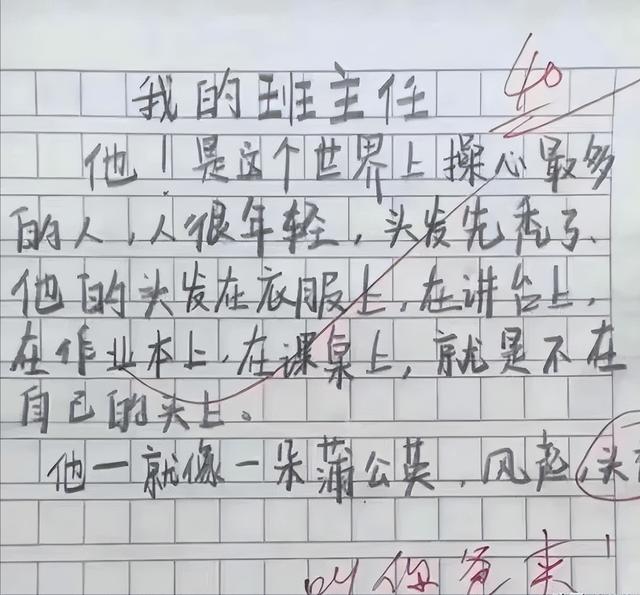 我的班主任
40
他！是这个世界上操心最多
的人，人很年轻，头发先秃了、
他的头发在衣服上，在讲台上，
在作业本上，在课桌上，就是不在
自己的头上。
他一就像一朵蒲公英，风起，头
叫你爸来！